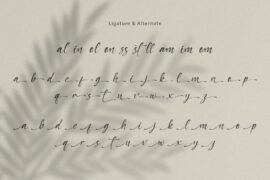 Ligature & Alternate
al in el on ss st ll am im om
a b c d e f g h i j k l m n o p
q r s t u v w x y z
a b c d e f g h i j k l m n o p
q r s t u v w x y z